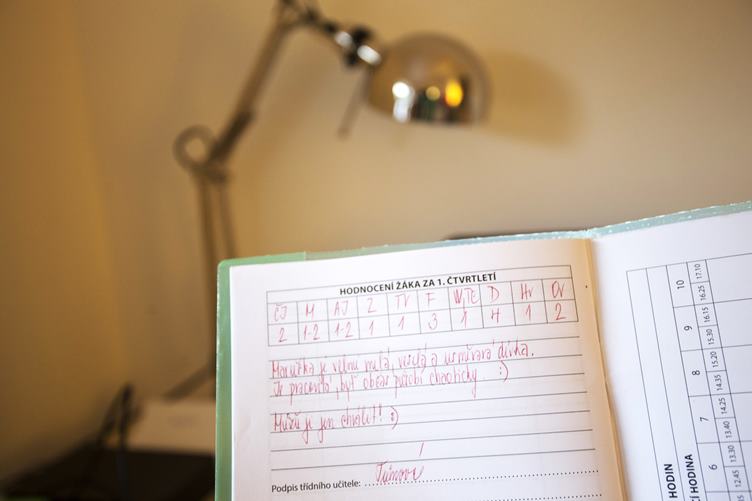 HODNOCENÍ ŽÁKA ZA 1. ČTVRTLETÍ
ČJ M AJ Z TV F D HV OV
2 1-2 1-2 1 1 3 1 4 1 2
je velmi milá, veselá a usměvavá dívka.
Je pracovitá, byť občas působí chaoticky :)
Můžu ji jen chválit! :)
Podpis třídního učitele:
HODIN
HODINA
6 7 8 9 10
12.45 13.30 13.40 14.25 14.35 15.20 15.30 16.15 16.25 17.10